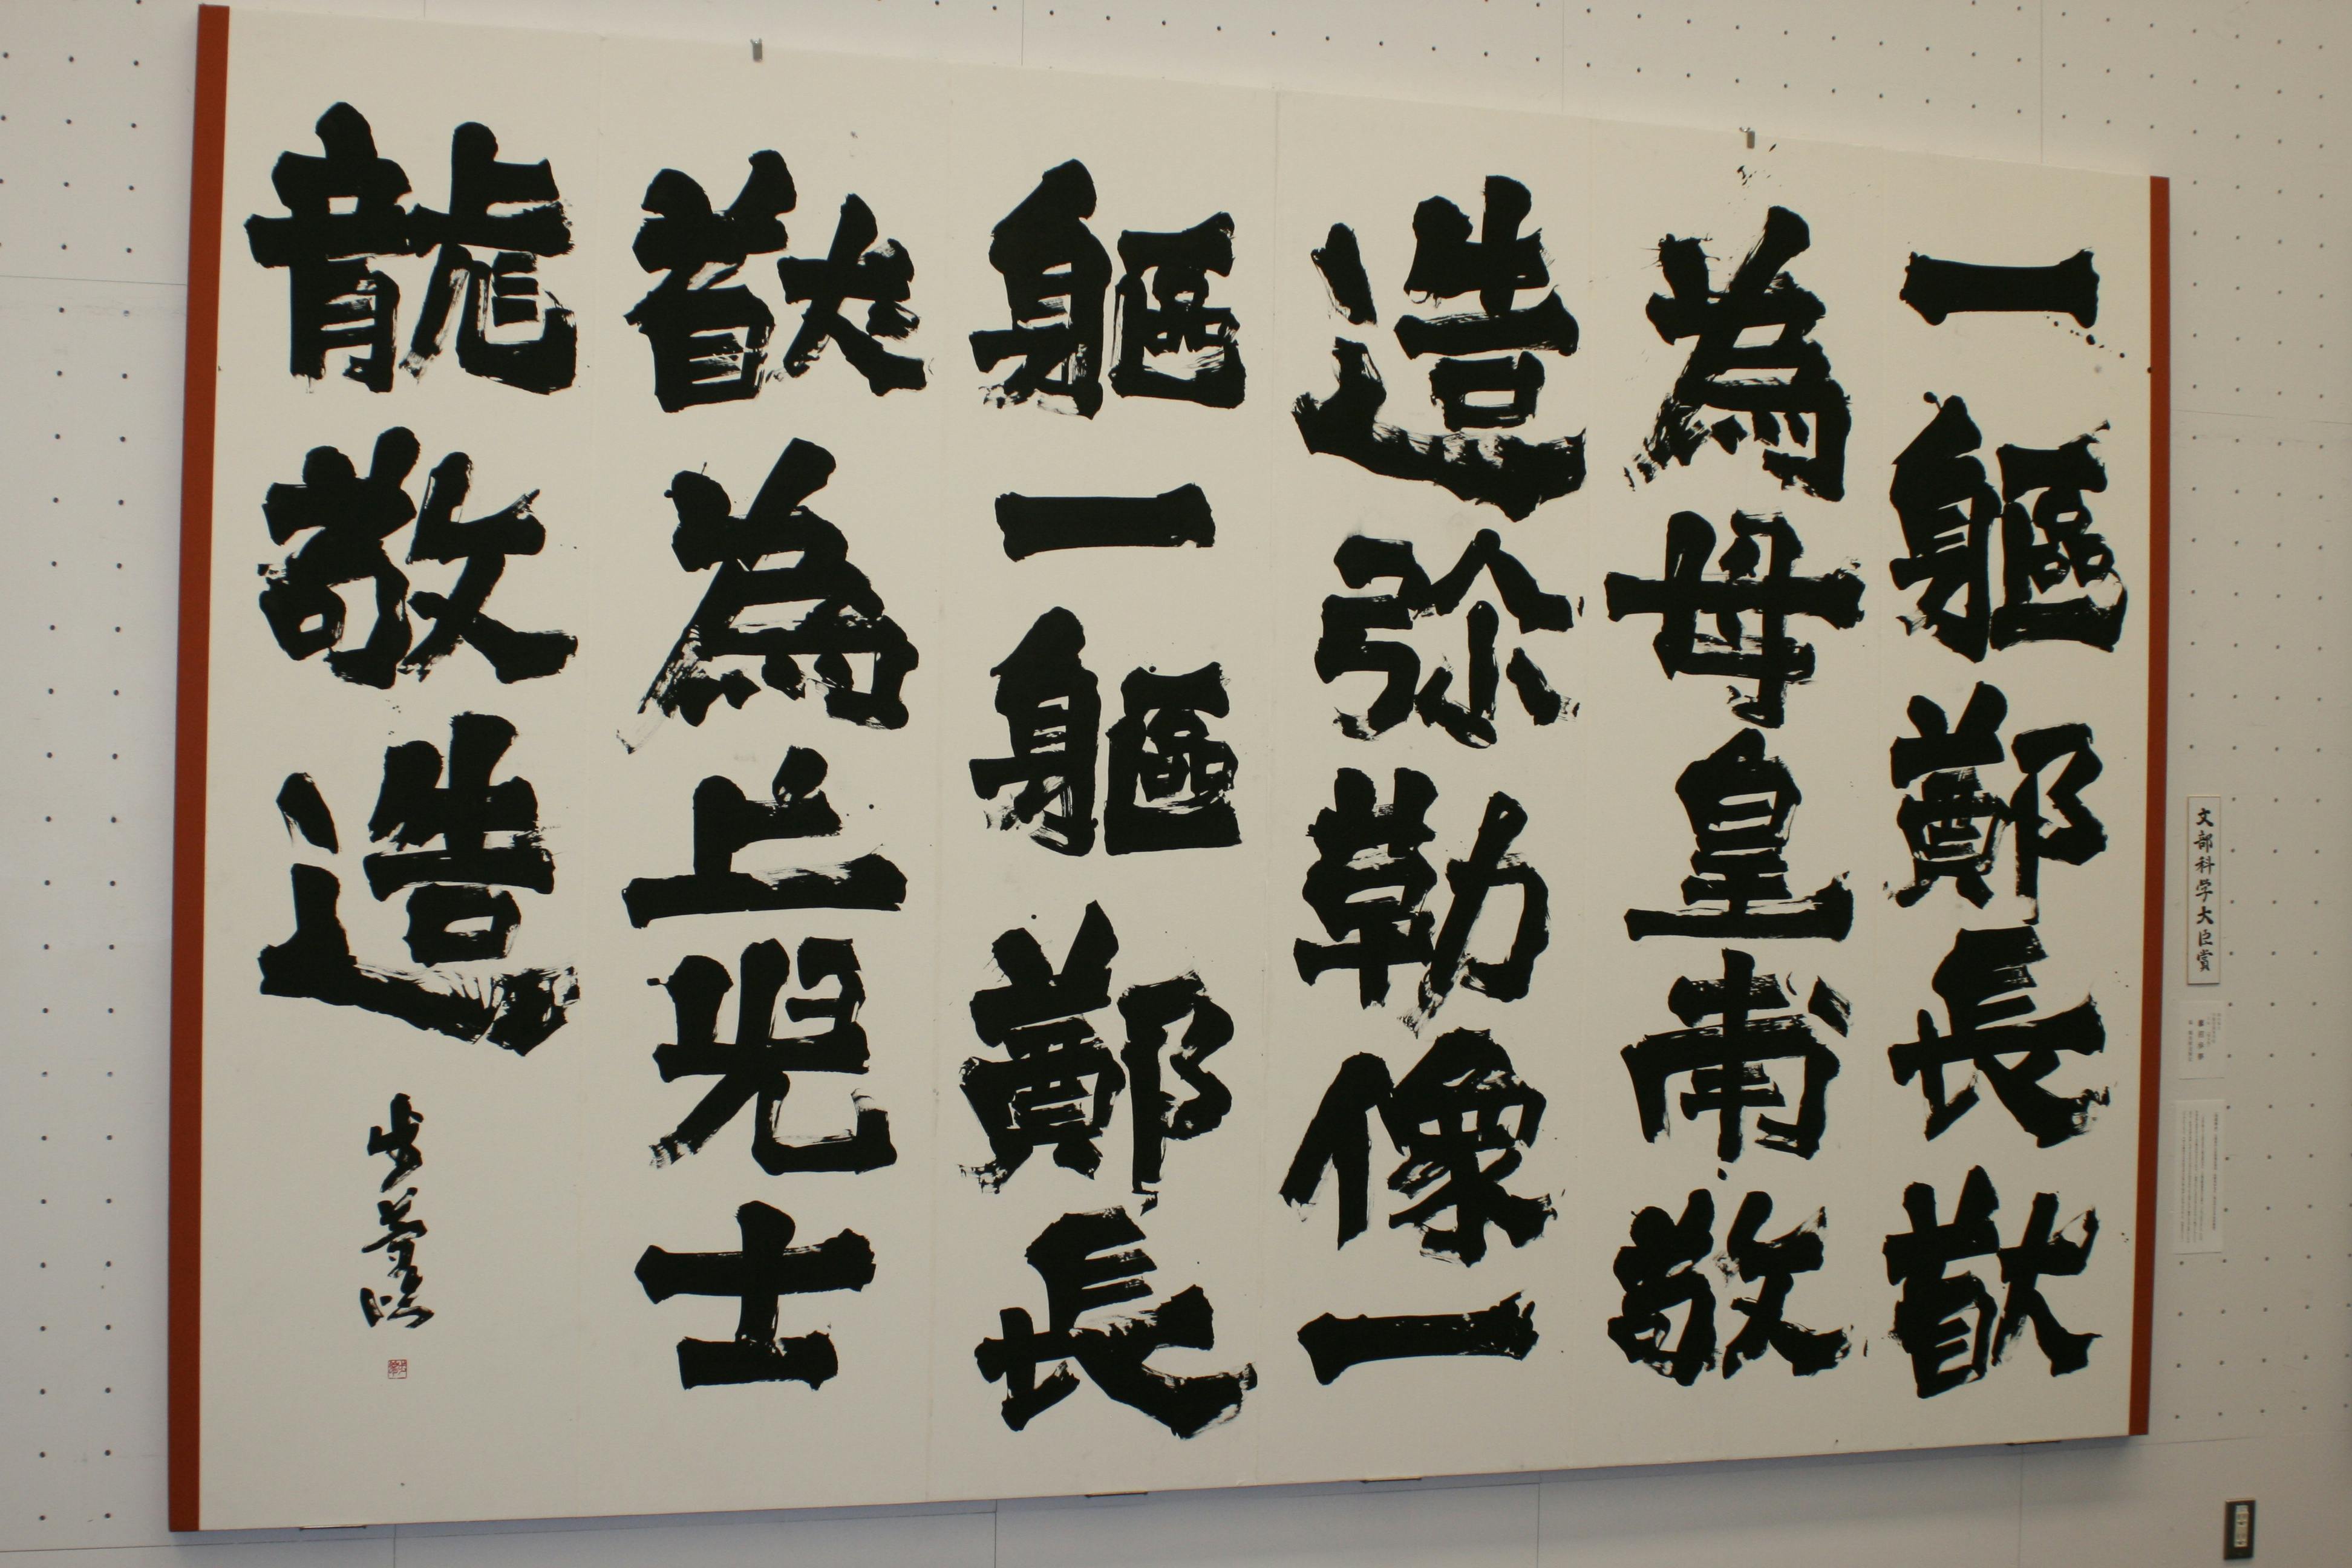 一軀鄭長猷
為母皇甫敬
造弥勒像一
軀一軀鄭長
猷為上光士
龍敬造
文部科学大臣賞